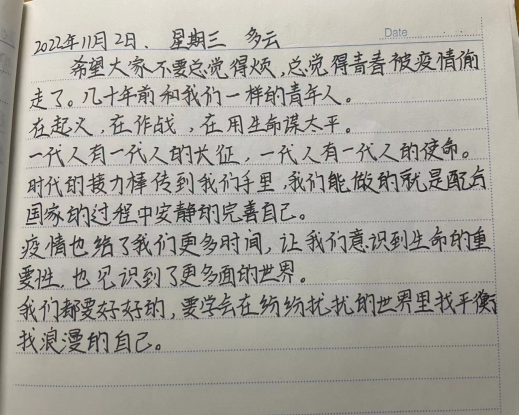 2022年11月2日. 星期三 多云
Date
希望大家不要总觉得烦,总觉得青春被疫情偷
走了。几十年前和我们一样的青年人。
在起义,在作战,在用生命谋太平。
一代人有一代人的长征,一代人有一代人的使命。
时代的接力棒传到我们手里,我们能做的就是配合
国家的过程中安静的完善自己。
疫情也给了我们更多时间,让我们意识到生命的重
要性,也见识到了更多面的世界。
我们都要好好的,要学会在纷纷扰扰的世界里找平衡
找浪漫的自己。